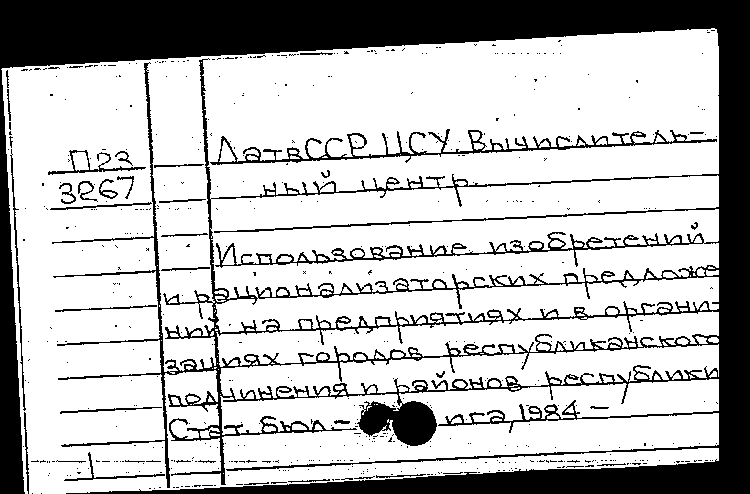 П23
3267
ЛатвССР. ЦСУ. Вычислитель-
ный центр.
Использование изобретений
и рационализаторских предложе
ний на предприятиях и в органи-
зациях городов республиканского
подчинения и районов республики
Стат. бюл. - ига, 1984 -